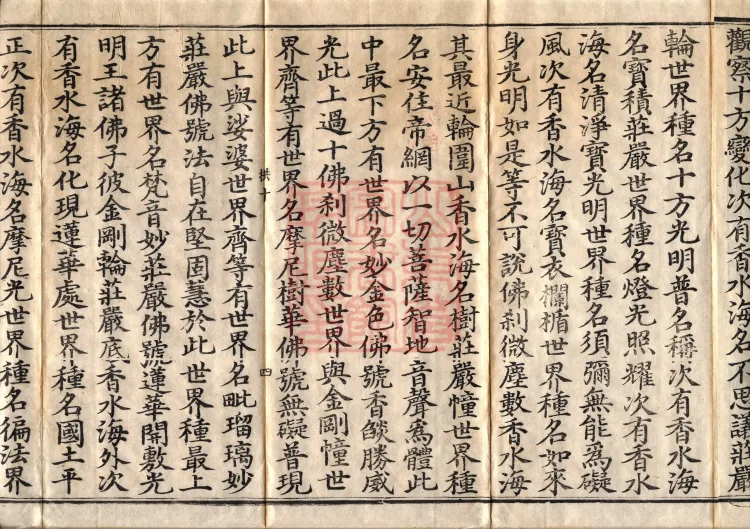 觀察十方變化次有香水海名不思議莊嚴
輪世界種名十方光明普名稱次有香水海
名寶積莊嚴世界種名燈光照耀次有香水
海名清淨寶光明世界種名須彌無能爲礙
風次有香水海名寶衣欄楯世界種名如來
身光明如是等不可說佛刹微塵數香水海
其最近輪圍山香水海名樹莊嚴幢世界種
名安住帝網以一切菩薩智地音聲爲體此
中最下方有世界名妙金色佛號香燄勝威
光此上過十佛刹微塵數世界與金剛幢世
界齊等有世界名摩尼樹華佛號無礙普現
拱十 四
此上與娑婆世界齊等有世界名毗瑠璃妙
莊嚴佛號法自在堅固慧於此世界種最上
方有世界名梵音妙莊嚴佛號蓮華開敷光
明王諸佛子彼金剛輪莊嚴底香水海外次
有香水海名化現蓮華處世界種名國土平
正次有香水海名摩尼光世界種名徧法界